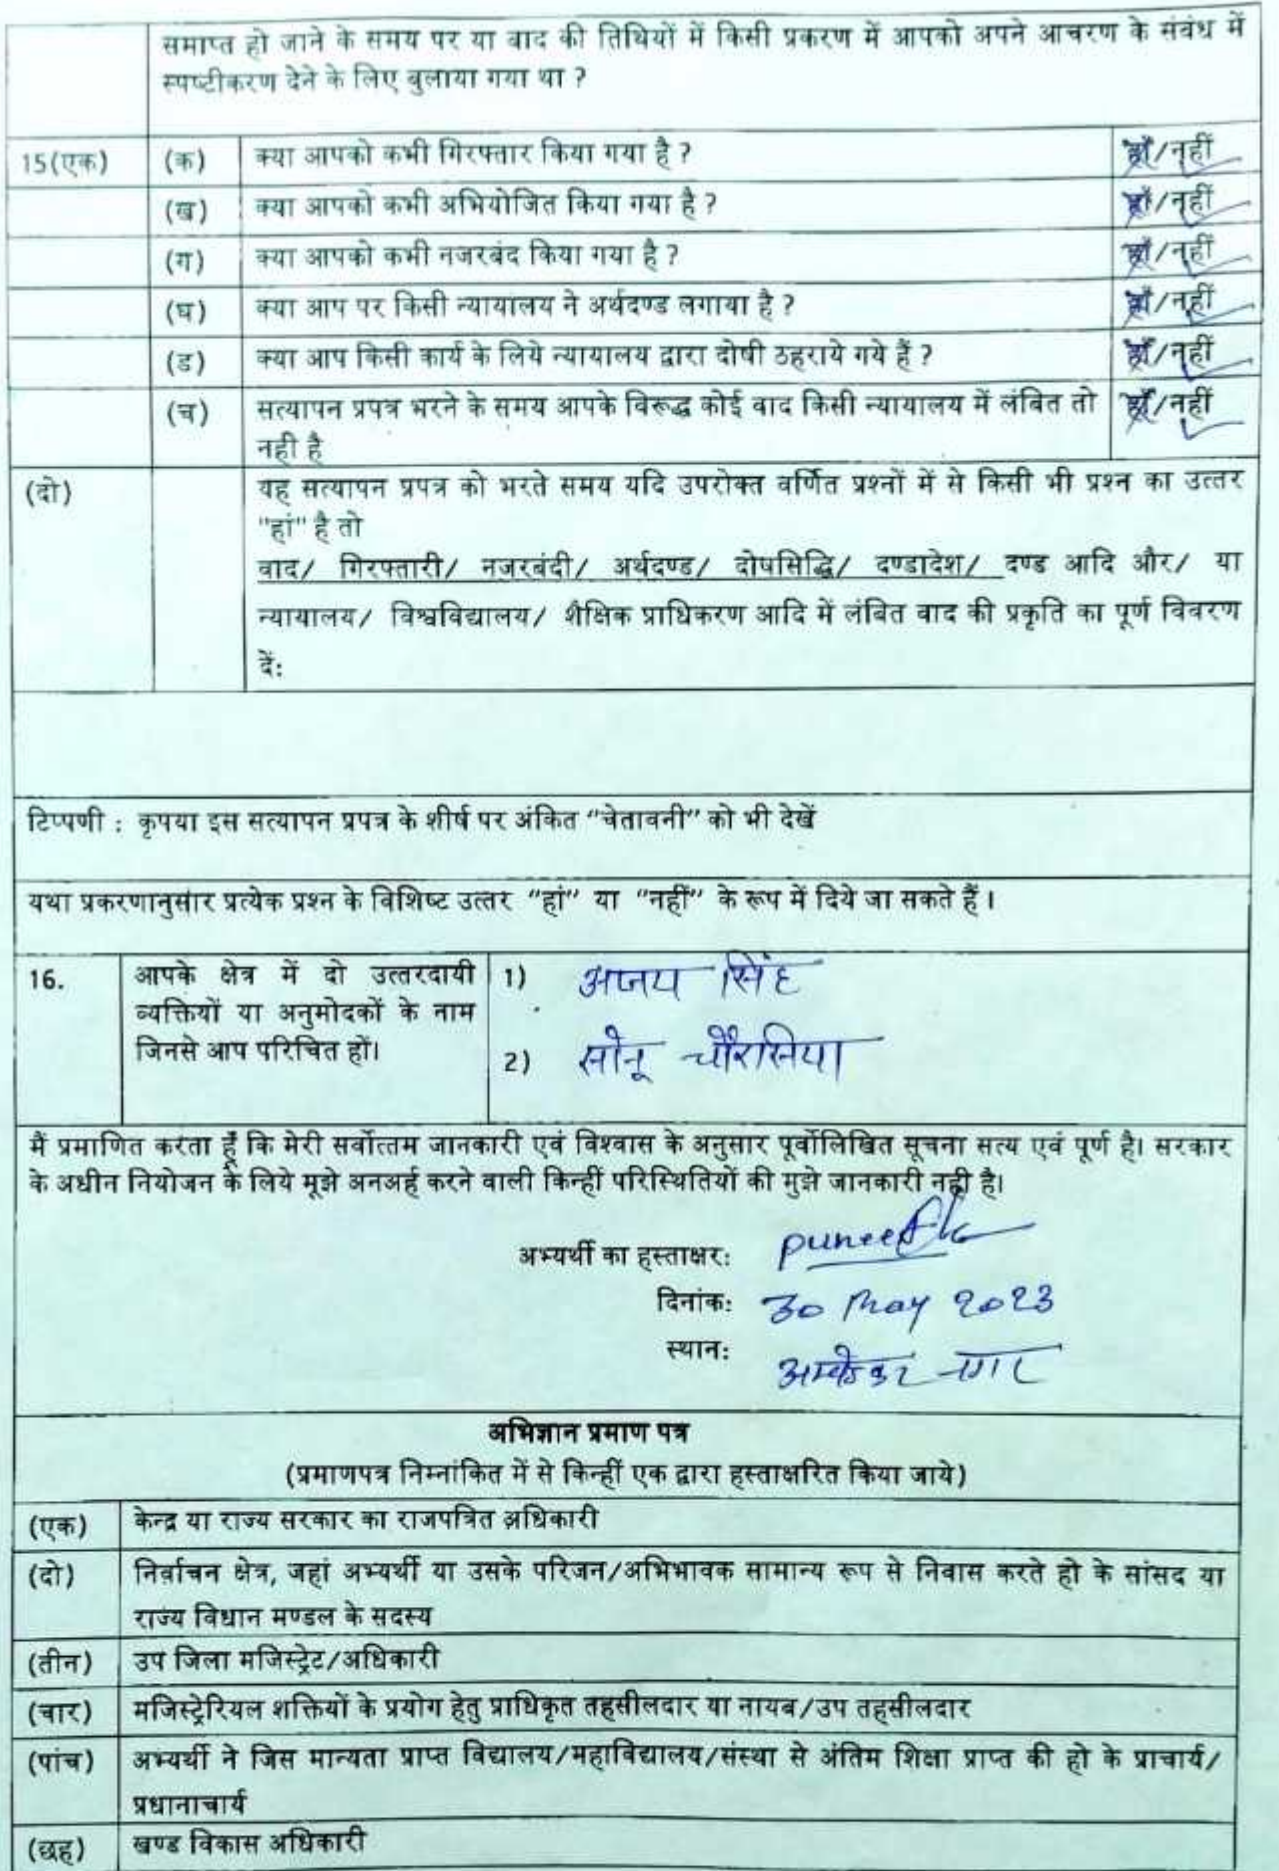 समाप्त हो जाने के समय पर या वाद की तिथियों में किसी प्रकरण में आपको अपने आचरण के संबंध में
स्पष्टीकरण देने के लिए बुलाया गया था ?
15(एक) (क) क्या आपको कभी गिरफ्तार किया गया है ? हाँ/नहीं
(ख) क्या आपको कभी अभियोजित किया गया है ? हाँ/नहीं
(ग) क्या आपको कभी नजरबंद किया गया है ? हाँ/नहीं
(घ) क्या आप पर किसी न्यायालय ने अर्थदण्ड लगाया है ? हाँ/नहीं
(ड) क्या आप किसी कार्य के लिये न्यायालय द्वारा दोषी ठहराये गये हैं ? हाँ/नहीं
(च) सत्यापन प्रपत्र भरने के समय आपके विरूद्ध कोई वाद किसी न्यायालय में लंबित तो हाँ/नहीं
नही है
(दो) यह सत्यापन प्रपत्र को भरते समय यदि उपरोक्त वर्णित प्रश्नों में से किसी भी प्रश्न का उत्तर
"हां" है तो
वाद/ गिरफ्तारी/ नजरबंदी/ अर्थदण्ड/ दोषसिद्धि/ दण्डादेश/ दण्ड आदि और/ या
न्यायालय/ विश्वविद्यालय/ शैक्षिक प्राधिकरण आदि में लंबित वाद की प्रकृति का पूर्ण विवरण
दें:
टिप्पणी : कृपया इस सत्यापन प्रपत्र के शीर्ष पर अंकित "चेतावनी" को भी देखें
यथा प्रकरणानुसार प्रत्येक प्रश्न के विशिष्ट उत्तर "हां" या "नहीं" के रूप में दिये जा सकते हैं ।
16. आपके क्षेत्र में दो उत्तरदायी 1) अजय सिंह
व्यक्तियों या अनुमोदकों के नाम
जिनसे आप परिचित हों। 2) सोनू चौरसिया
मैं प्रमाणित करता हूँ कि मेरी सर्वोत्तम जानकारी एवं विश्वास के अनुसार पूर्वोलिखित सूचना सत्य एवं पूर्ण है। सरकार
के अधीन नियोजन के लिये मूझे अनअर्ह करने वाली किन्हीं परिस्थितियों की मुझे जानकारी नही है।
अभ्यर्थी का हस्ताक्षर: puneet
दिनांक: 30 May 2023
स्थान: अम्बेडकर नगर
अभिज्ञान प्रमाण पत्र
(प्रमाणपत्र निम्नांकित में से किन्हीं एक द्वारा हस्ताक्षरित किया जाये)
(एक) केन्द्र या राज्य सरकार का राजपत्रित अधिकारी
(दो) निर्वाचन क्षेत्र, जहां अभ्यर्थी या उसके परिजन/अभिभावक सामान्य रूप से निवास करते हो के सांसद या
राज्य विधान मण्डल के सदस्य
(तीन) उप जिला मजिस्ट्रेट/अधिकारी
(चार) मजिस्ट्रेरियल शक्तियों के प्रयोग हेतु प्राधिकृत तहसीलदार या नायब/उप तहसीलदार
(पांच) अभ्यर्थी ने जिस मान्यता प्राप्त विद्यालय/महाविद्यालय/संस्था से अंतिम शिक्षा प्राप्त की हो के प्राचार्य/
प्रधानाचार्य
(छह) खण्ड विकास अधिकारी